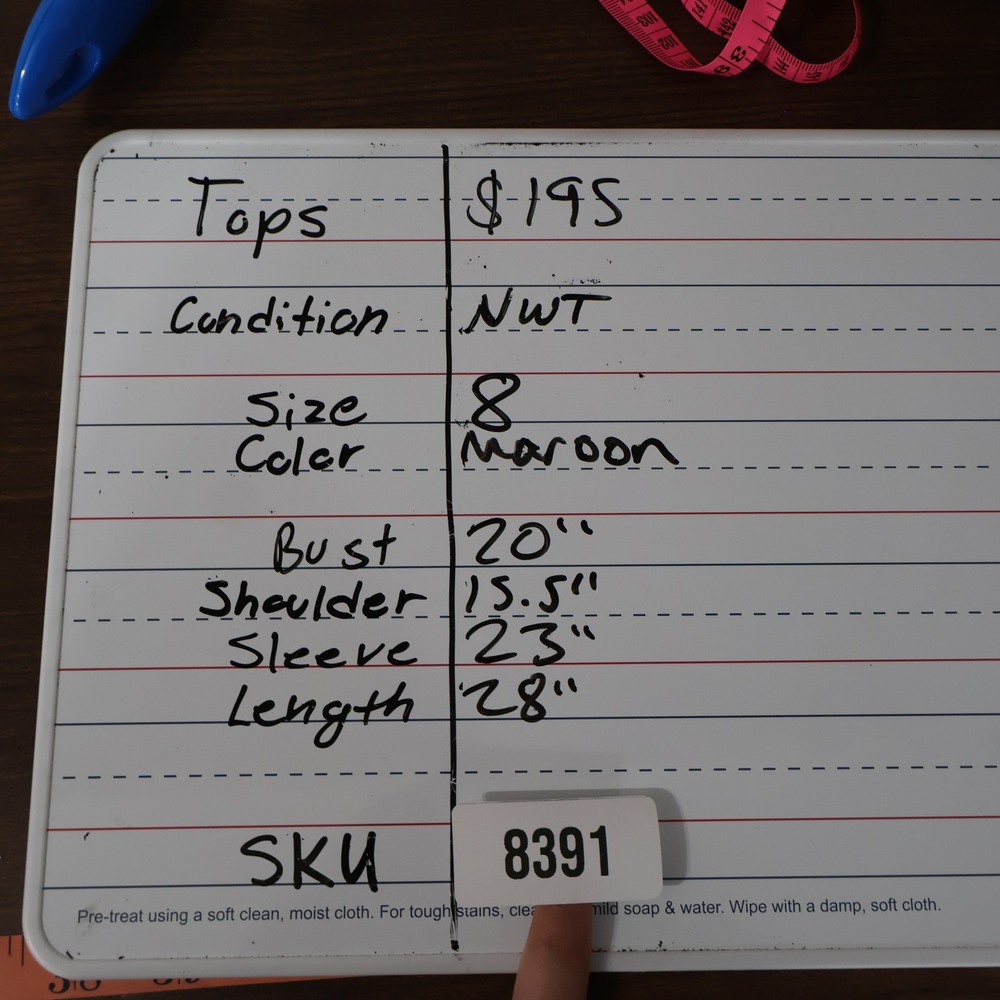 Tops $195
Condition NWT
Size 8
Color Maroon
Bust 20"
Shoulder 15.5"
Sleeve 23"
Length 28"
SKU 8391
Pre-treat using a soft clean, moist cloth. For tough stains, mild soap & water. Wipe with a damp, soft cloth.